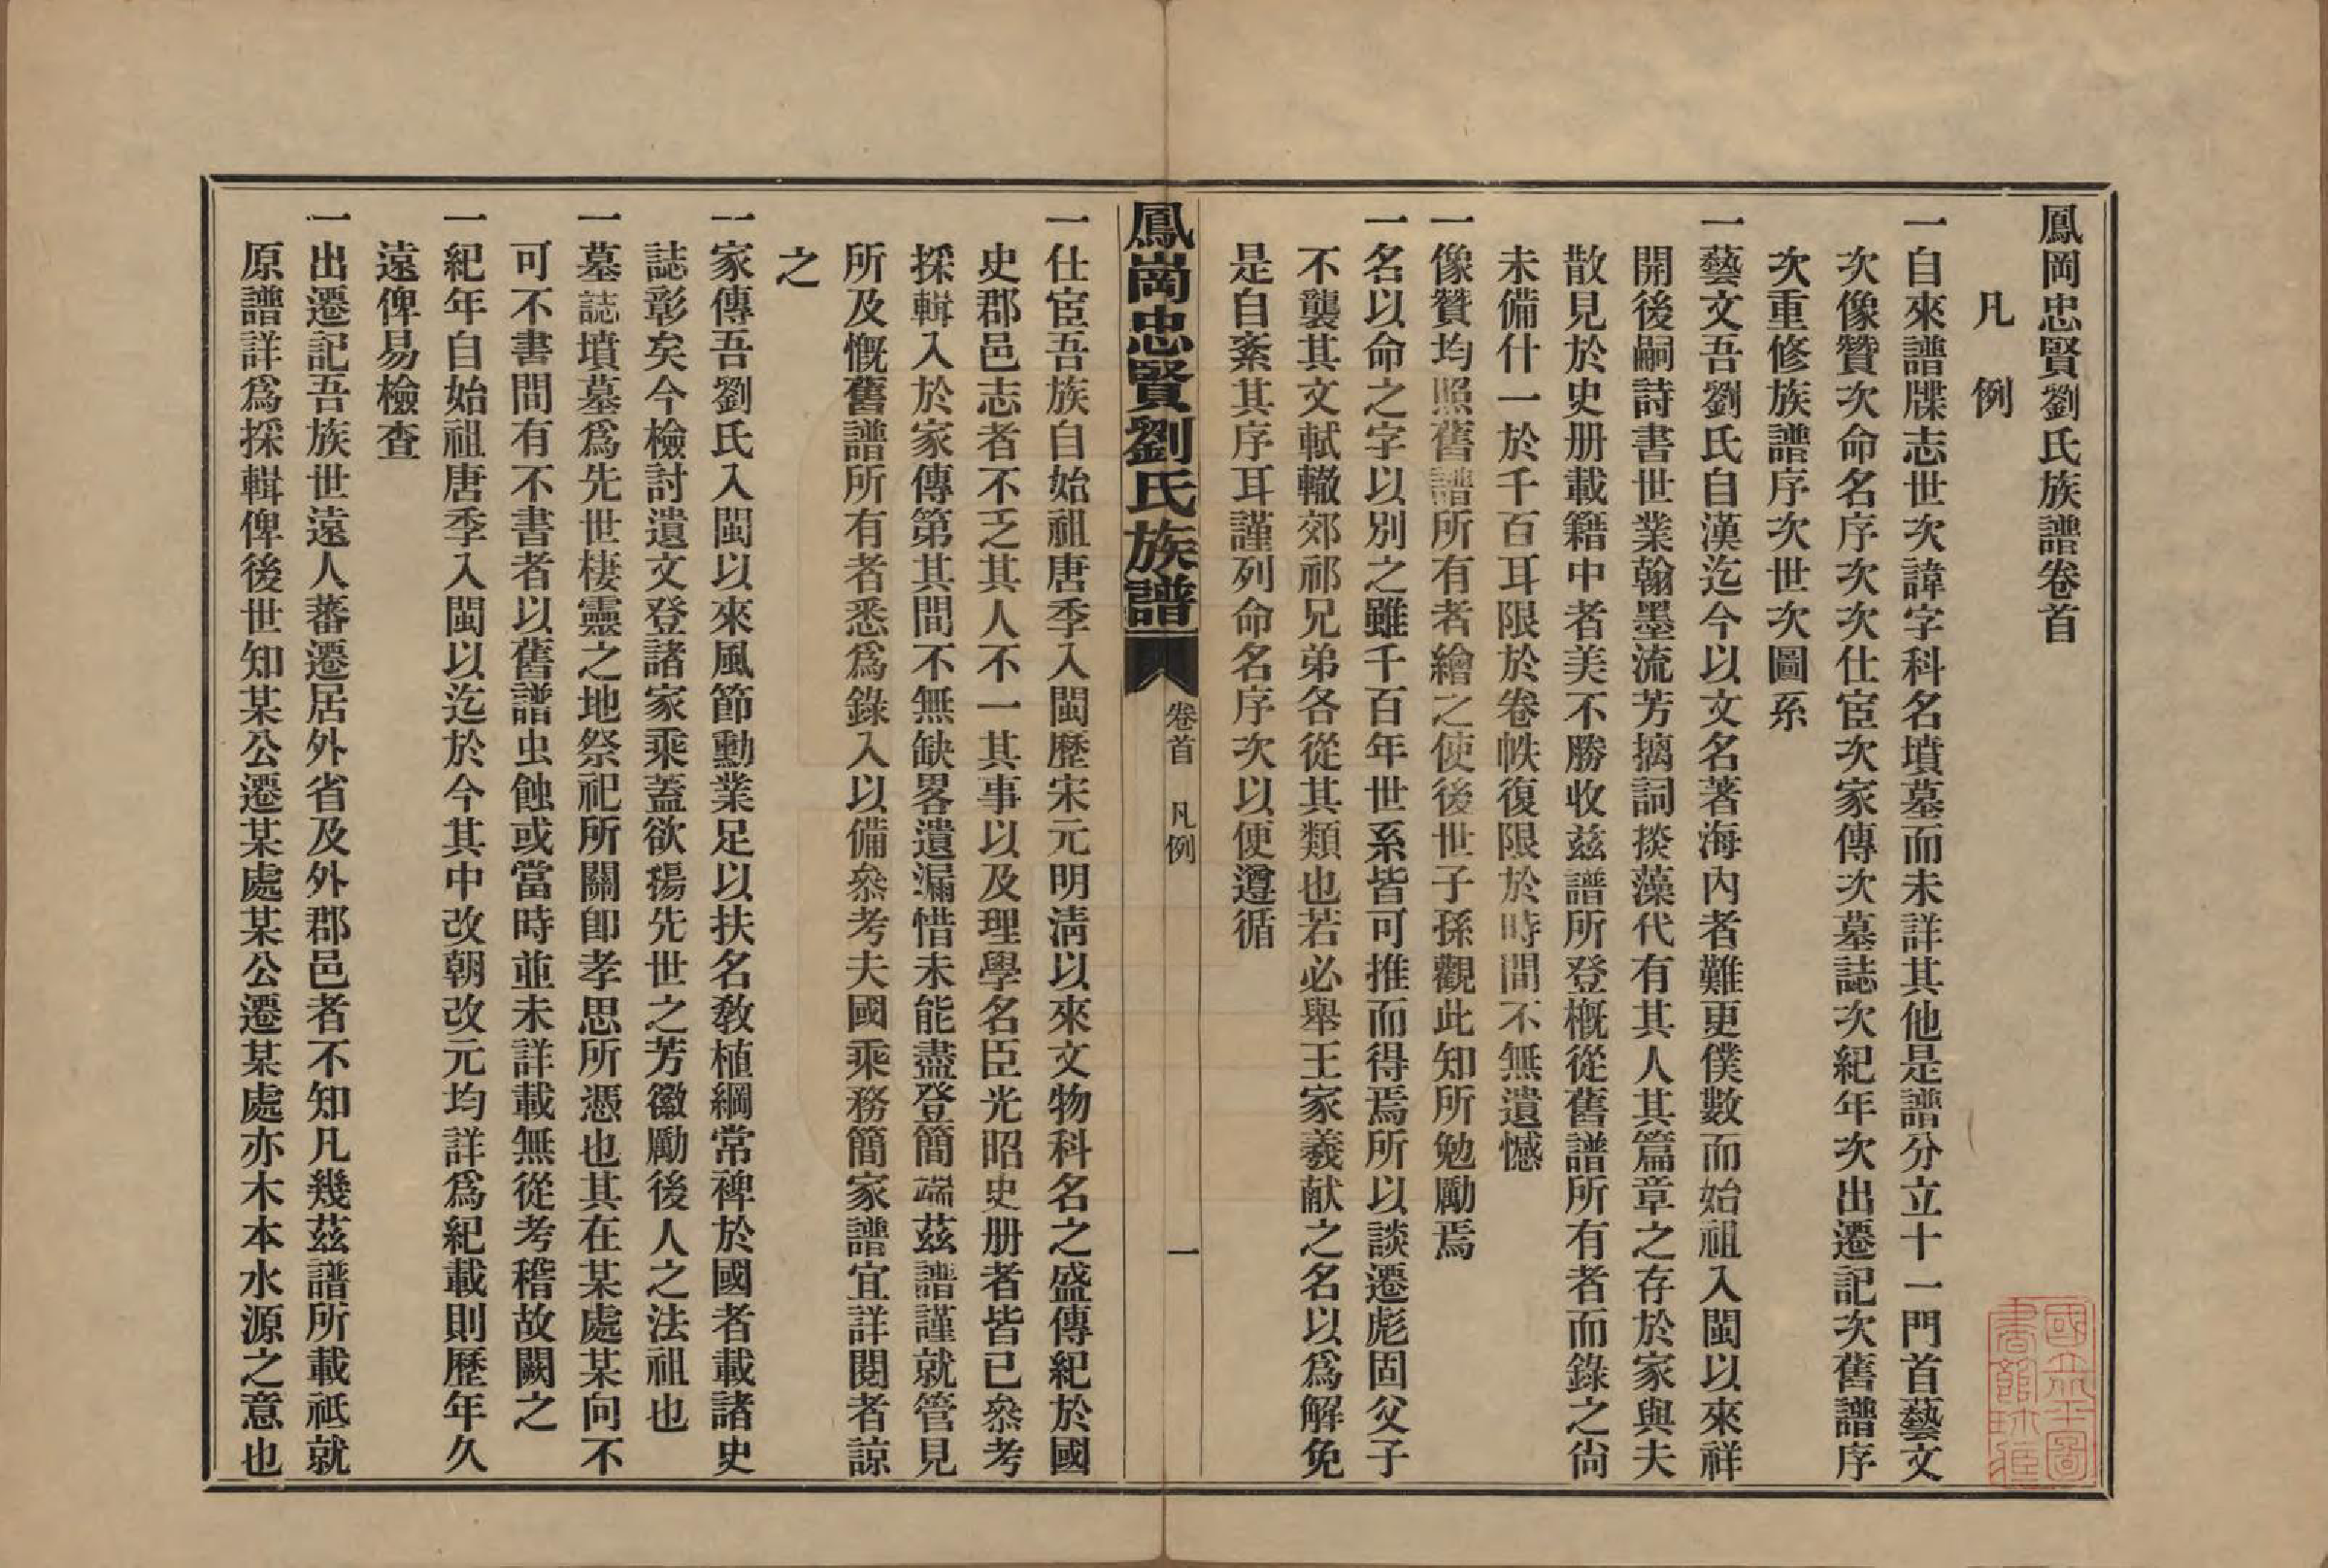 鳳岡忠賢劉氏族譜卷首
凡例
一自來譜牒志世次諱字科名墳墓而未詳其他是譜分立十一門首藝文
次像贊次命名序次次仕宦次家傳次墓誌次紀年次出遷記次舊譜序
次重修族譜序次世次圖系
一藝文吾劉氏自漢迄今以文名著海內者難更僕數而始祖入閩以來祥
開後嗣詩書世業翰墨流芳摛詞掞藻代有其人其篇章之存於家與夫
散見於史册載籍中者美不勝收茲譜所登概從舊譜所有者而錄之尙
未備什一於千百耳限於卷帙復限於時間不無遺憾
一像贊均照舊譜所有者繪之使後世子孫觀此知所勉勵焉
一名以命之字以別之雖千百年世系皆可推而得焉所以談遷彪固父子
不襲其文軾轍郊祁兄弟各從其類也若必舉王家羲献之名以爲解免
是自紊其序耳謹列命名序次以便遵循
鳳崗忠賢劉氏族譜
卷首 凡例
一
一仕宦吾族自始祖唐季入閩歷宋元明淸以來文物科名之盛傳紀於國
史郡邑志者不乏其人不一其事以及理學名臣光昭史册者皆已叅考
採輯入於家傳第其間不無缺畧遺漏惜未能盡登簡端茲譜謹就管見
所及慨舊譜所有者悉爲錄入以備叅考夫國乘務簡家譜宜詳閱者諒
之
一家傳吾劉氏入閩以來風節勳業足以扶名敎植綱常裨於國者載諸史
誌彰矣今檢討遺文登諸家乘蓋欲揚先世之芳徽勵後人之法祖也
一墓誌墳墓爲先世棲靈之地祭祀所關卽孝思所憑也其在某處某向不
可不書間有不書者以舊譜虫蝕或當時並未詳載無從考稽故闕之
一紀年自始祖唐季入閩以迄於今其中改朝改元均詳爲紀載則歷年久
遠俾易檢查
一出遷記吾族世遠人蕃遷居外省及外郡邑者不知凡幾茲譜所載祇就
原譜詳爲採輯俾後世知某公遷某處某公遷某處亦木本水源之意也